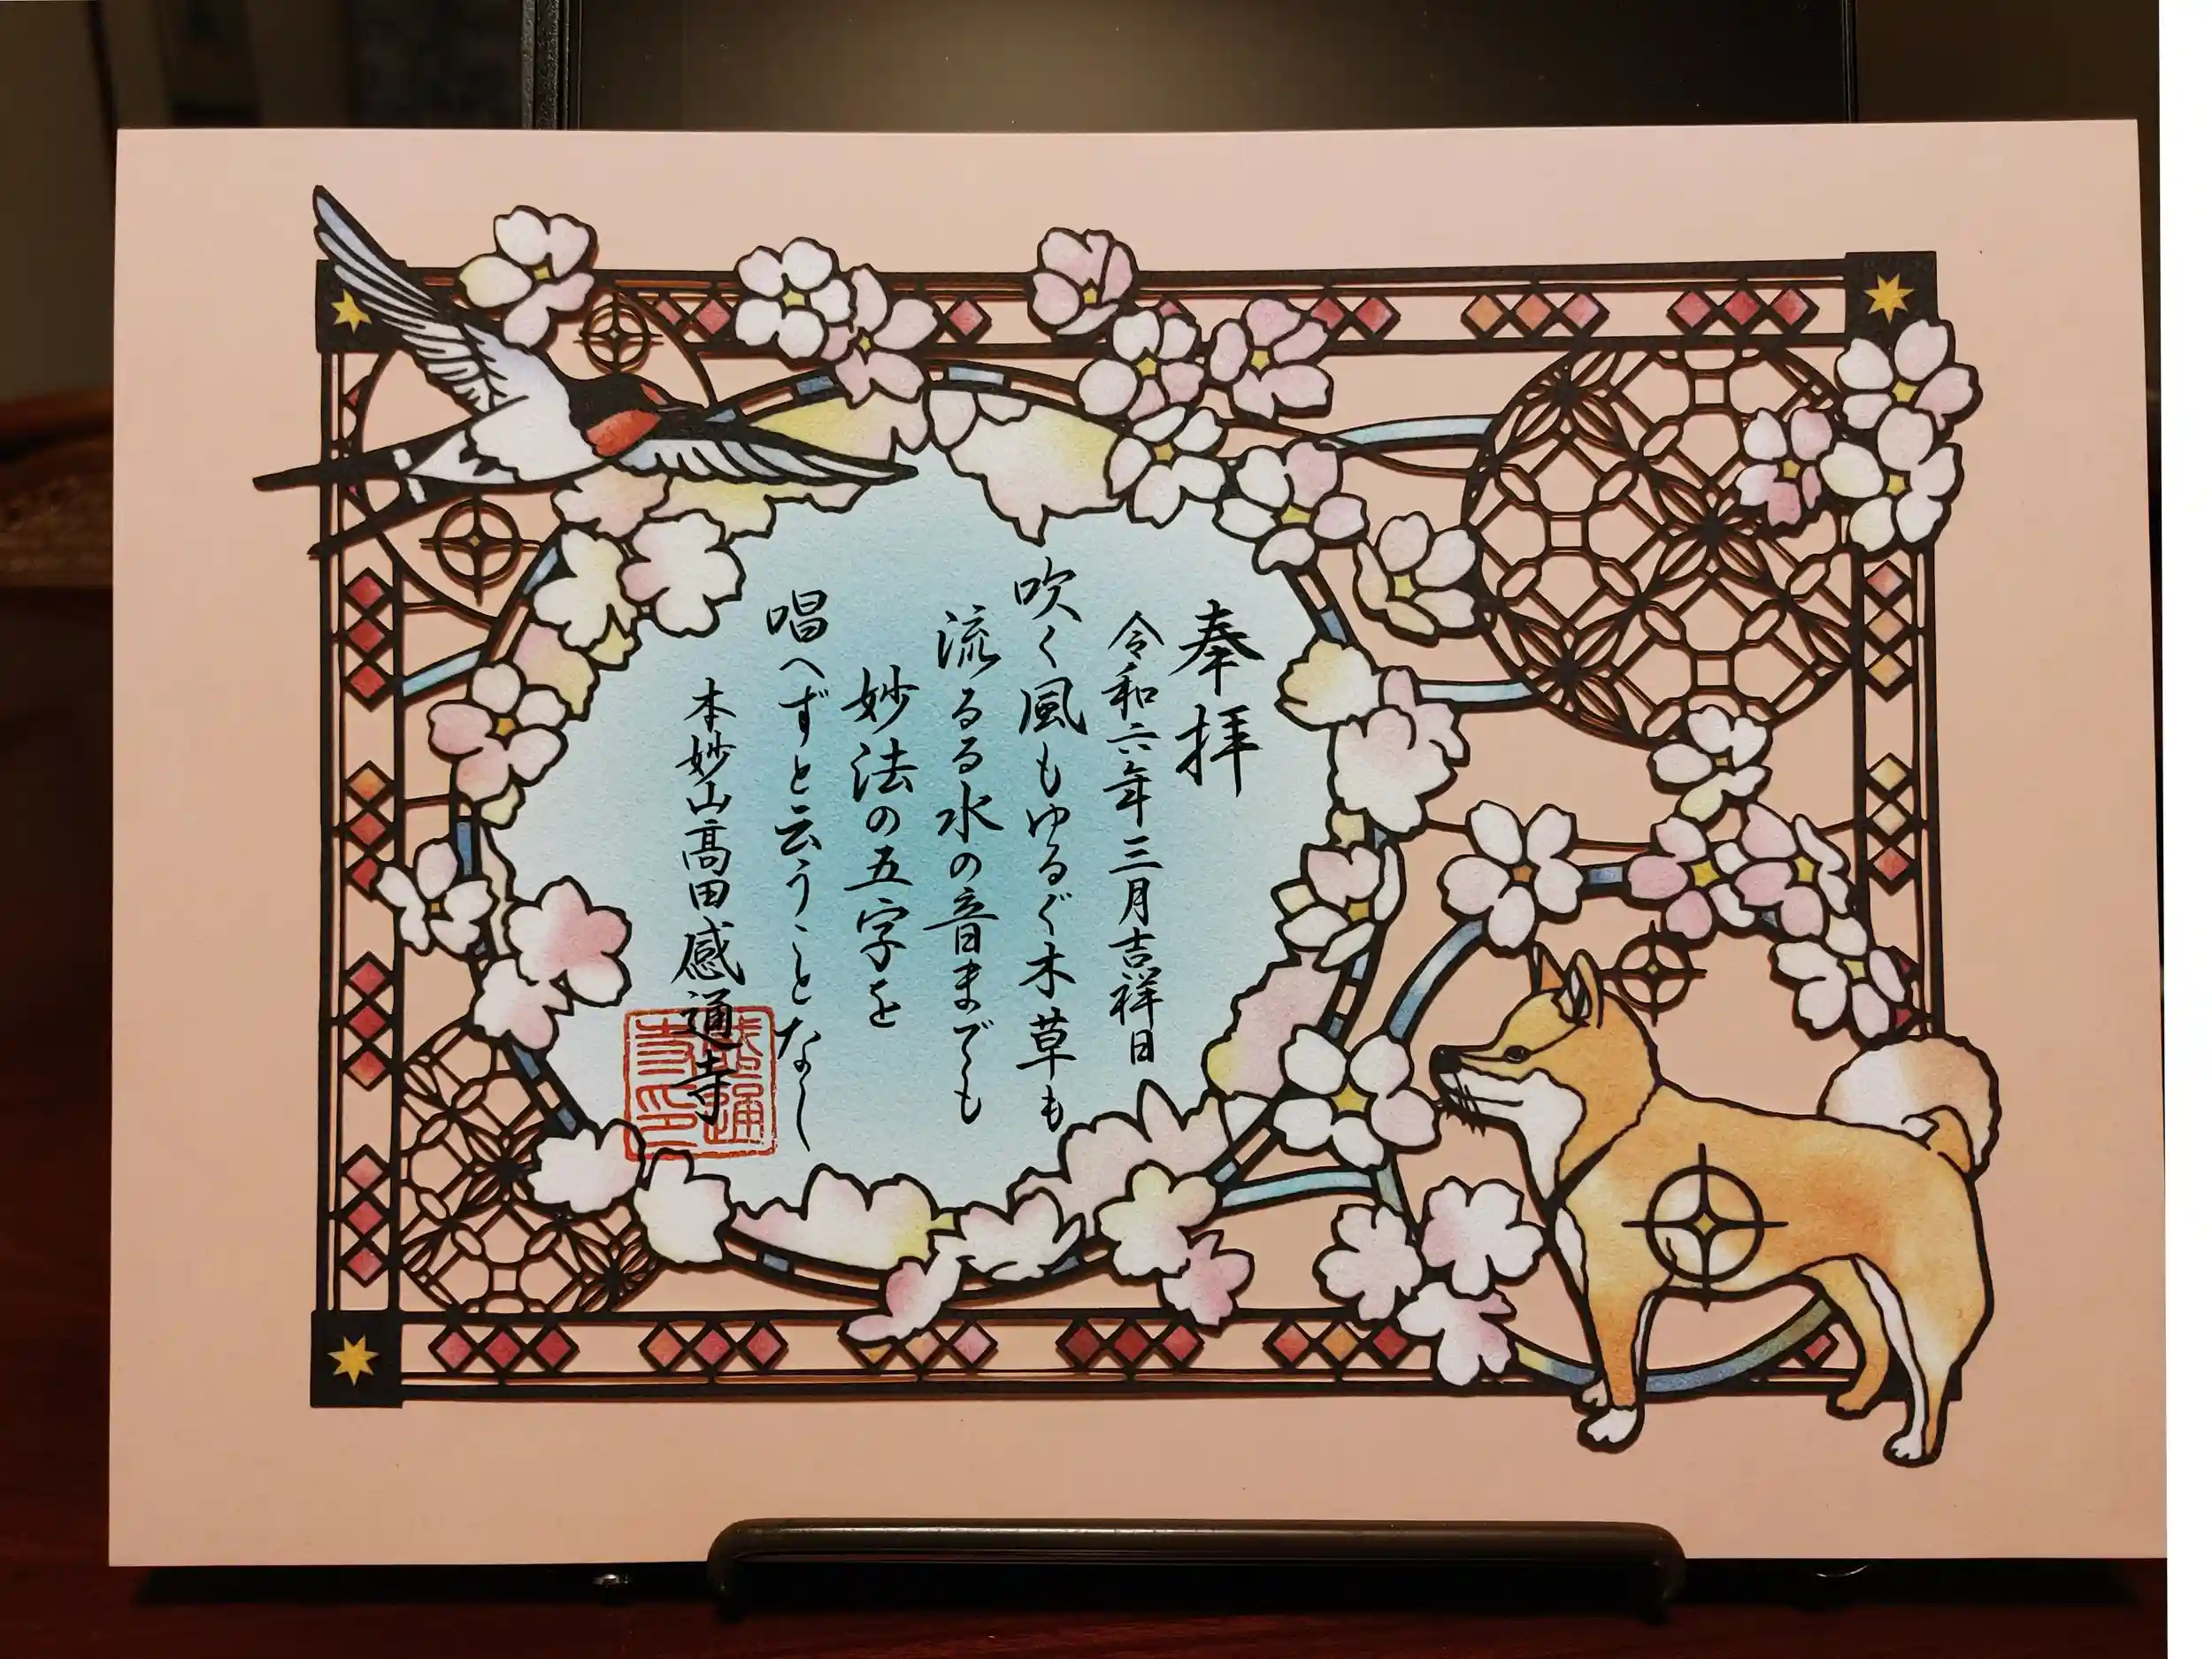 奉拝
令和六年三月吉祥日
吹く風もゆるぐ木草も
流るる水の音までも
妙法の五字を
唱へずと云うことなし
本妙山高田感通寺
感通寺印